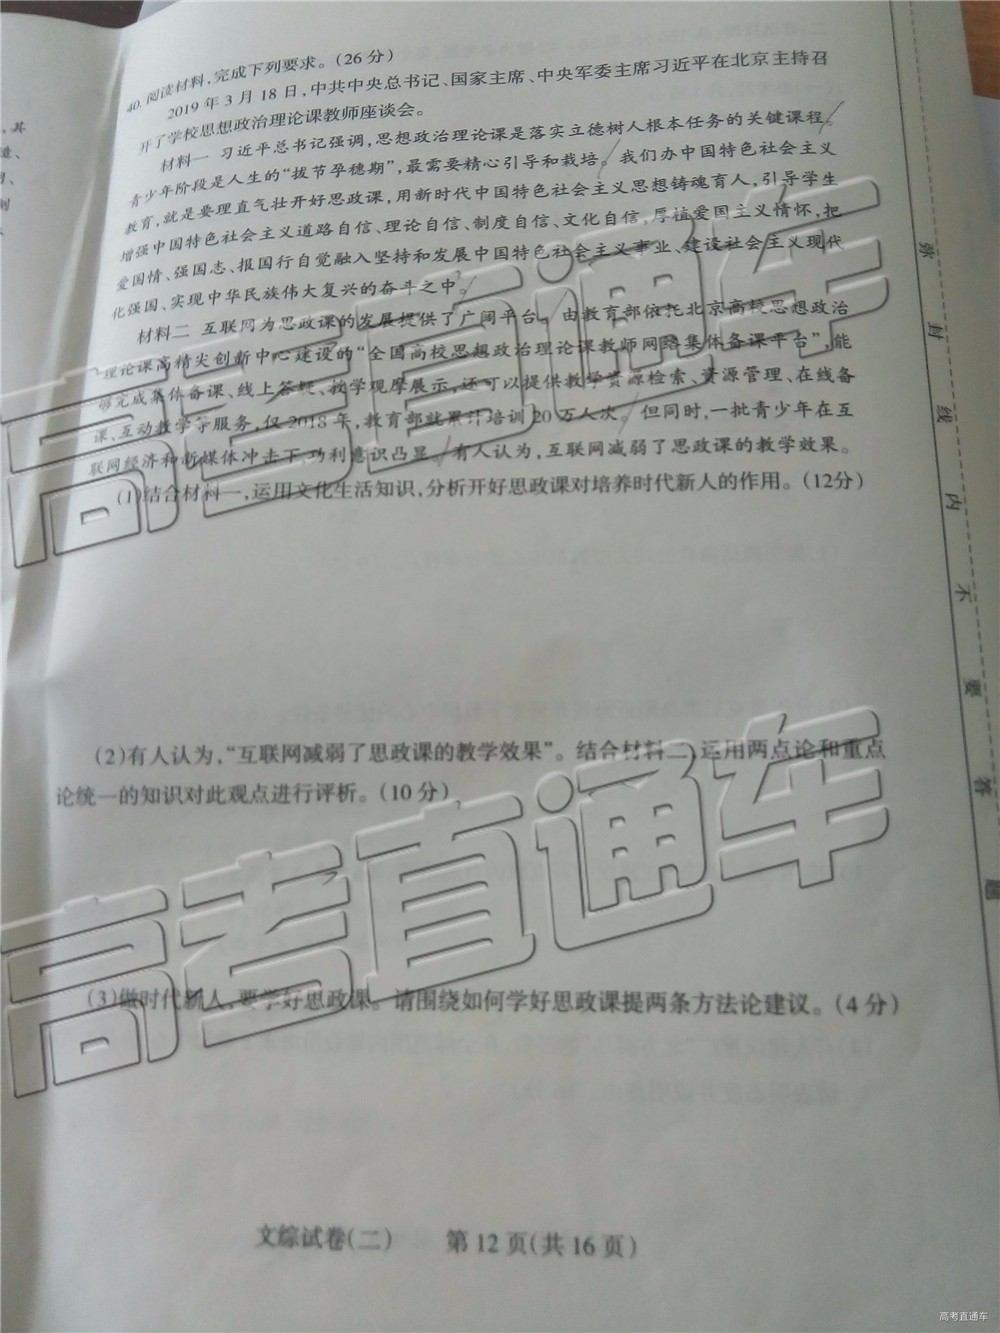 40. 阅读材料,完成下列要求。(26分)
2019年3月18日,中共中央总书记、国家主席、中央军委主席习近平在北京主持召
开了学校思想政治理论课教师座谈会。
材料一 习近平总书记强调,思想政治理论课是落实立德树人根本任务的关键课程。
青少年阶段是人生的“拔节孕穗期”,最需要精心引导和栽培。我们办中国特色社会主义
教育,就是要理直气壮开好思政课,用新时代中国特色社会主义思想铸魂育人,引导学生
增强中国特色社会主义道路自信、理论自信、制度自信、文化自信,厚植爱国主义情怀,把
爱国情、强国志、报国行自觉融入坚持和发展中国特色社会主义事业、建设社会主义现代
化强国、实现中华民族伟大复兴的奋斗之中。
材料二 互联网为思政课的发展提供了广阔平台。由教育部依托北京高校思想政治
理论课高精尖创新中心建设的“全国高校思想政治理论课教师网络集体备课平台”,能
够完成集体备课、线上答疑、教学观摩展示,还可以提供教学资源检索、资源管理、在线备
课、互动教学等服务,仅2018年,教育部就累计培训20万人次。但同时,一批青少年在互
联网经济和新媒体冲击下功利意识凸显,有人认为,互联网减弱了思政课的教学效果。
(1)结合材料一,运用文化生活知识,分析开好思政课对培养时代新人的作用。(12分)
(2)有人认为,“互联网减弱了思政课的教学效果”。结合材料二,运用两点论和重点
论统一的知识对此观点进行评析。(10分)
(3)做时代新人,要学好思政课。请围绕如何学好思政课提两条方法论建议。(4分)
文综试卷(二) 第12页(共16页)
弥
封
线
内
不
要
答
题
其
造、
则
高考直通车
高考直通车
高考直通车